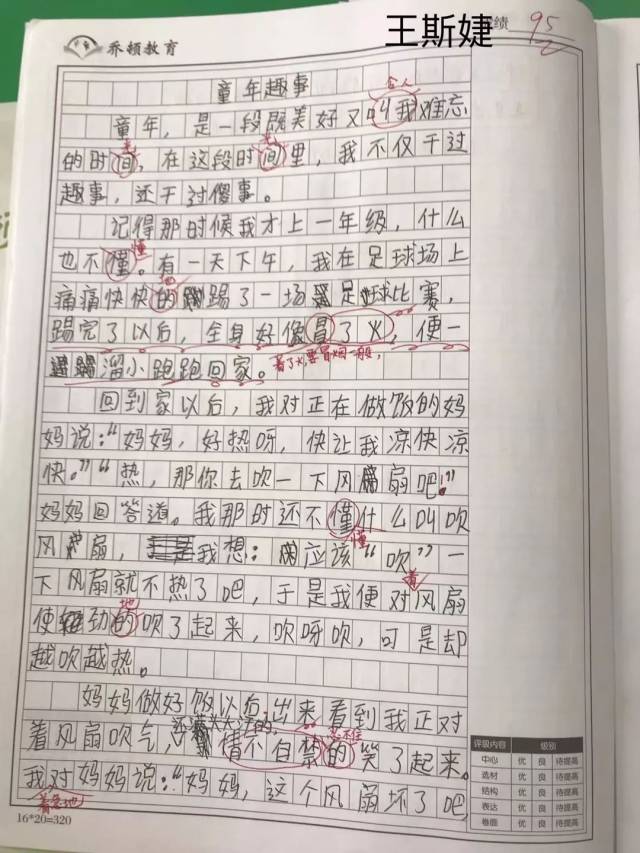 乔顿教育
王斯婕
成绩 95
童年趣事
童年，是一段既美好又叫我难忘
令人
的时间，在这段时间里，我不仅干过
趣事，还干过傻事。
记得那时候我才上一年级，什么
也不懂。有一天下午，我在足球场上
懂
痛痛快快的踢了一场足球比赛，
地
踢完了以后，全身好像冒了火，便一
溜小跑跑回家。
着了火,要冒烟一般,
回到家以后，我对正在做饭的妈
妈说：“妈妈，好热呀，快让我凉快凉
快。”“热，那你去吹一下风扇吧！”
妈妈回答道。我那时还不懂什么叫吹
懂
风扇，我想：应该“吹”一
下风扇就不热了吧，于是我便对风扇
着
使劲的吹了起来，吹呀吹，可是却
地
越吹越热。
妈妈做好饭以后，出来看到我正对
还满头大汗的，
着风扇吹气，情不自禁的笑了起来。
忍不住
我对妈妈说：“妈妈，这个风扇坏了吧，
着急地
16*20=320
评级内容 级别
中心 优 良 待提高
选材 优 良 待提高
结构 优 良 待提高
表达 优 良 待提高
卷面 优 良 待提高